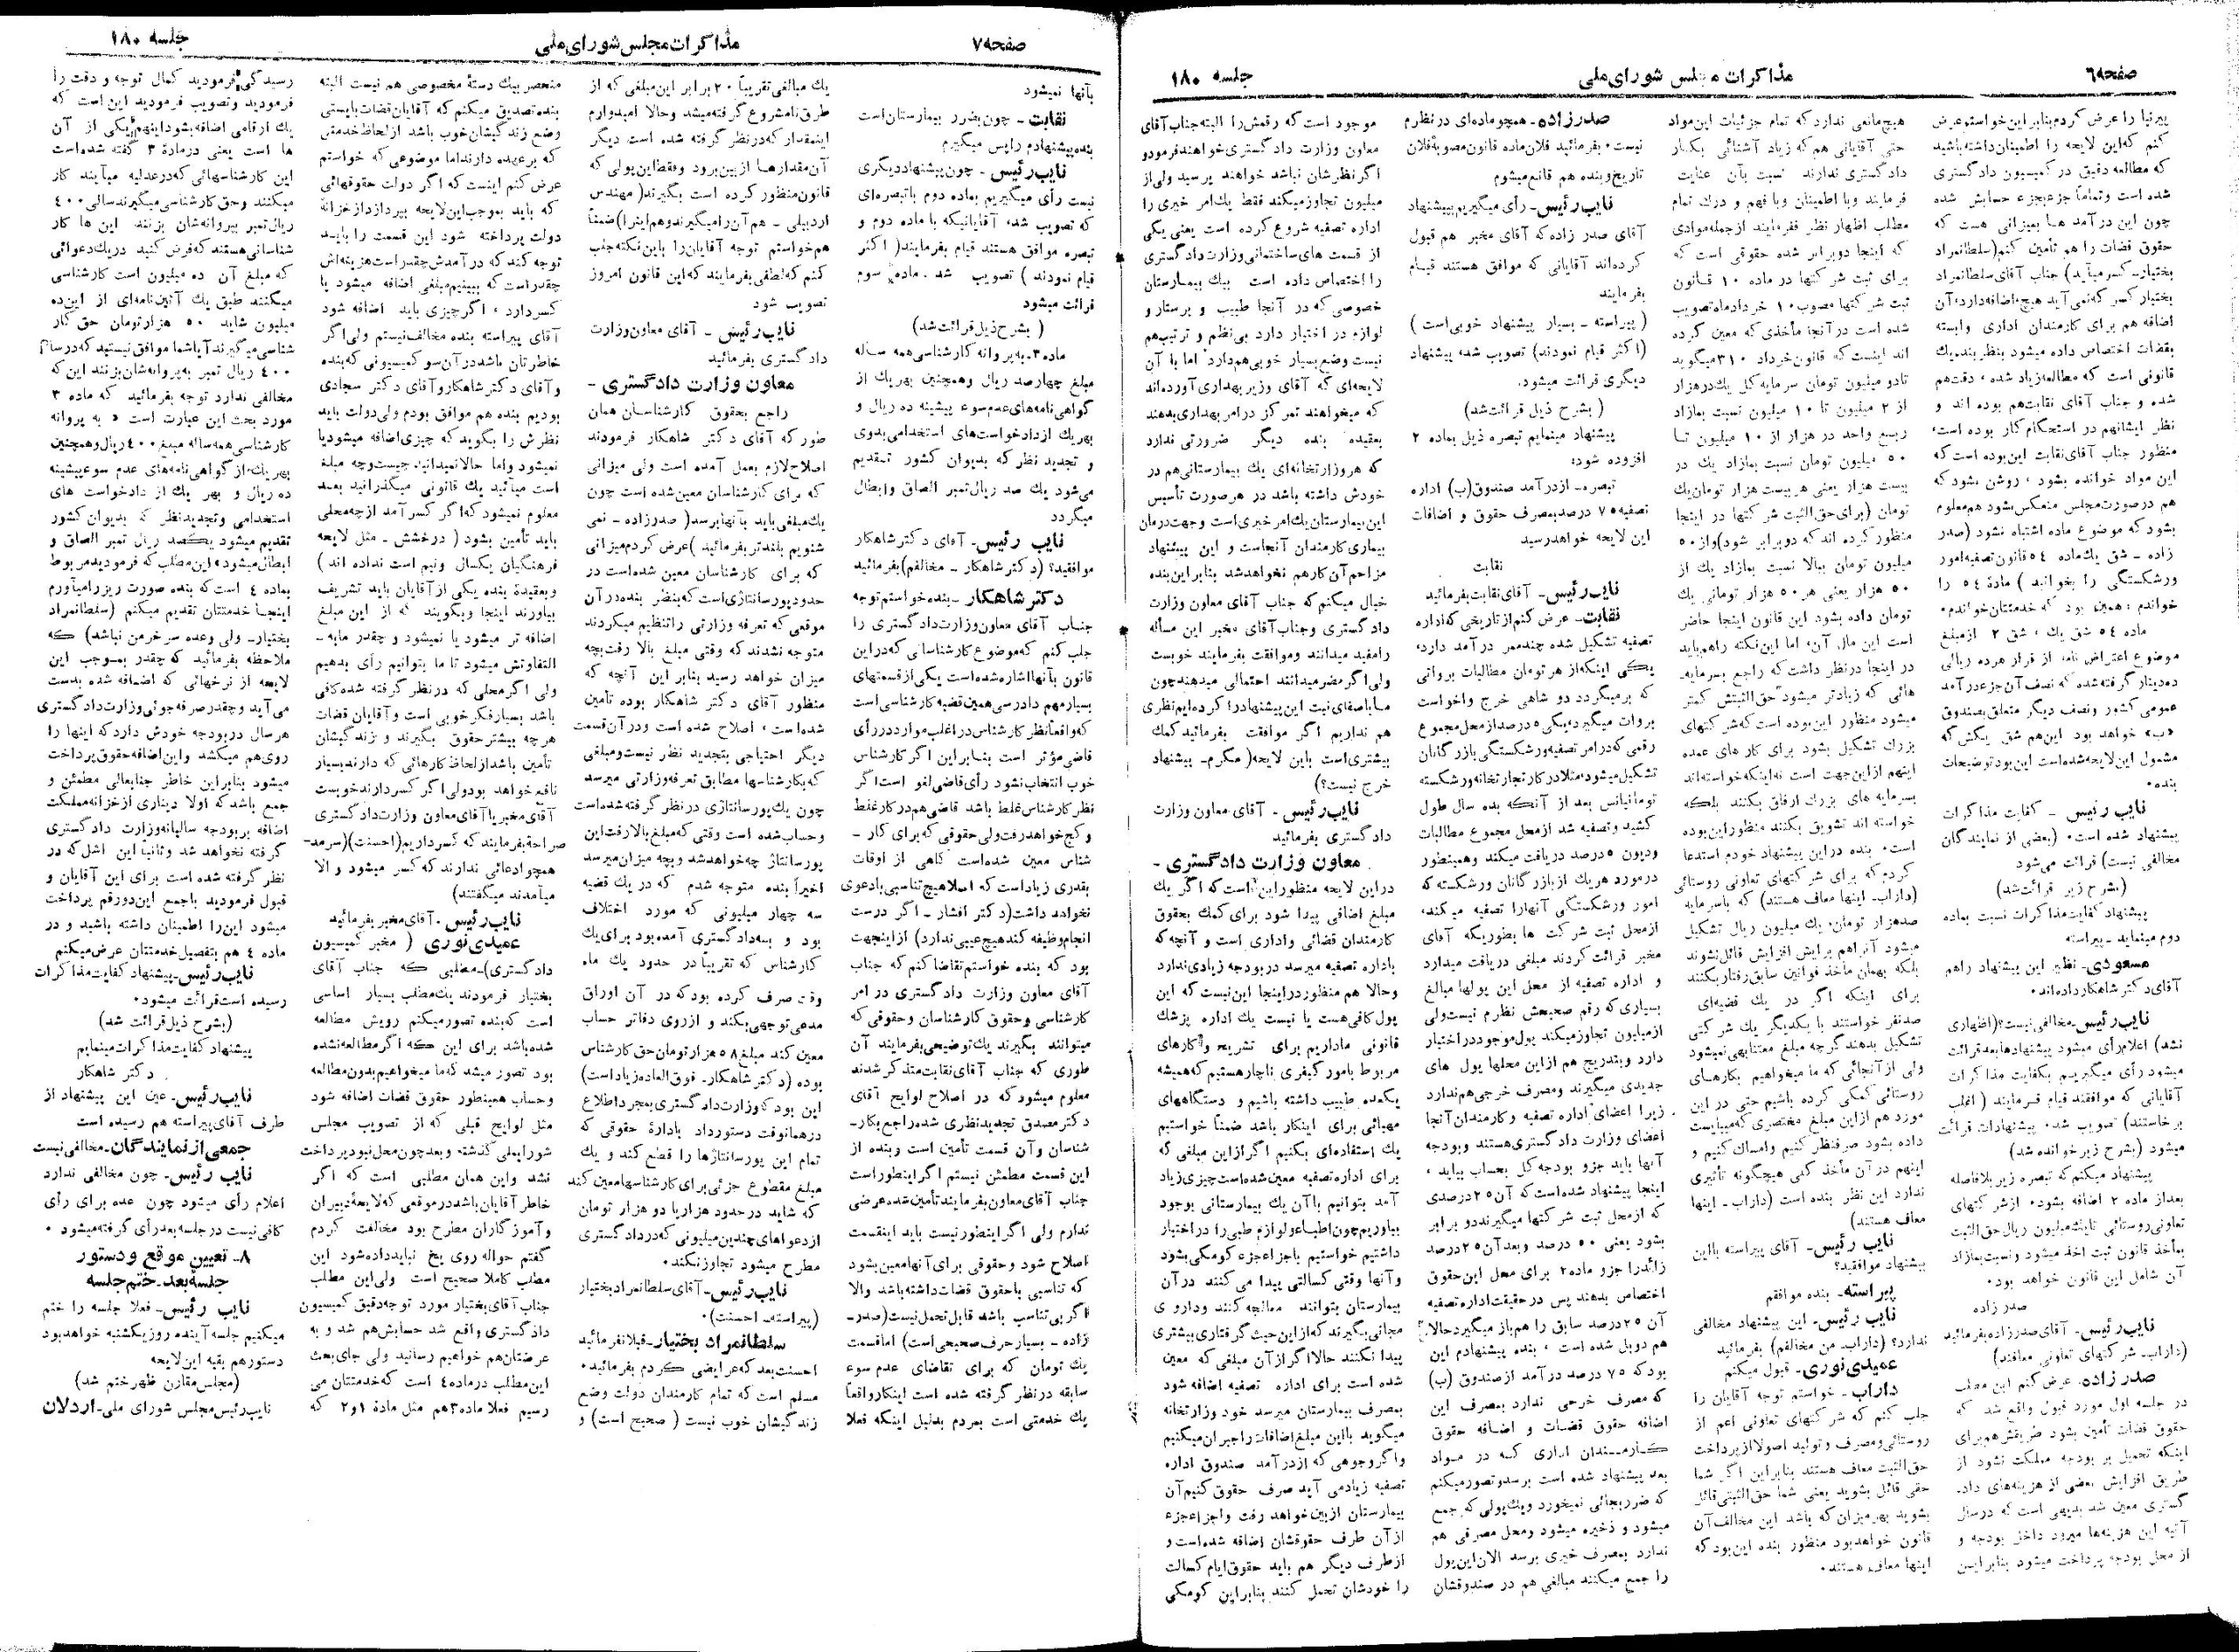 صفحه ٦
مذاکرات مجلس شورای ملی
جلسه ١٨٠
پیرنیا را عرض کردم بنابراین خواستم عرض
کنم که این لایحه را اطمینان داشته باشید
که مطالعه دقیق در کمیسیون دادگستری
شده است وتماماً جزءبجزء حسابش شده
چون این درآمد ها بمیزانی هست که
حقوق قضات را هم تأمین کنم (سلطانمراد
بختیار- کسرمیآید) جناب آقای سلطانمراد
بختیار کسر که نمی آید هیچ، اضافه دارد، آن
اضافه هم برای کارمندان اداری وابسته
بقضات اختصاص داده میشود بنظر بنده یك
قانونی است که مطالعه زیاد شده، دقت هم
شده و جناب آقای نقابت هم بوده اند و
نظر ایشانهم در استحکام کار بوده است،
منظور جناب آقای نقابت این بوده است که
این مواد خوانده بشود، روشن بشود که
هم درصورت مجلس منعکس بشود هم معلوم
بشود که موضوع ماده اشتباه نشود (صدر
زاده - شق یك ماده ٥٤ قانون تصفیه امور
ورشکستگی را بخوانید) ماده ٥٤ را
خواندم، همین بود که خدمتتان خواندم.
ماده ٥٤ شق یك، شق ٢ ازمبلغ
موضوع اعتراض نامه از قرار هرده ریالی
ده دینار گرفته شده که نصف آن جزء درآمد
عمومی کشور ونصف دیگر متعلق بصندوق
«ب» خواهد بود این هم شق یکش که
مشمول این لایحه شده است این بود توضیحات
بنده.
نایب رئیس - کفایت مذاکرات
پیشنهاد شده است. (بعضی از نمایندگان
مخالفی نیست) قرائت می شود
(بشرح زیر قرائت شد)
پیشنهاد کفایت مذاکرات نسبت بماده
دوم مینماید - پیراسته
مسعودی- نظیر این پیشنهاد راهم
آقای دکتر شاهکار داده اند.
نایب رئیس- مخالفی نیست؟ (اظهاری
نشد) اعلام رأی میشود پیشنهادها بعد قرائت
میشود رأی میگیریم بکفایت مذاکرات
آقایانی که موافقند قیام فرمایند (اغلب
برخاستند) تصویب شد. پیشنهادات قرائت
میشود (بشرح زیر خوانده شد)
پیشنهاد میکنم که تبصره زیر بلافاصله
بعداز ماده ٢ اضافه بشود. ازشرکتهای
تعاونی روستائی تا یك میلیون ریال حق الثبت
بمأخذ قانون ثبت اخذ میشود ونسبت بمازاد
آن شامل این قانون خواهد بود.
صدر زاده
نایب رئیس- آقای صدرزاده بفرمائید
(داراب- شرکتهای تعاونی معافند)
صدرزاده- عرض کنم این مطلب
در جلسه اول مورد قبول واقع شد که
حقوق قضات تأمین بشود طریقش هم برای
اینکه تحمیل بر بودجه مملکت نشود از
طریق افزایش بعضی از هزینه های داد-
گستری معین شد بدیهی است که درسال
آتیه این هزینه ها میرود داخل بودجه و
از محل بودجه پرداخت میشود بنابراین
هیچ مانعی ندارد که تمام جزئیات این مواد
حتی آقایانی هم که زیاد آشنائی بکار
دادگستری ندارند نسبت بآن عنایت
فرمایند وبا اطمینان وبا فهم و درك تمام
مطلب اظهار نظر فرمایند ازجمله موادی
که اینجا دوبرابر شده حقوقی است که
برای ثبت شرکتها در ماده ١٠ قانون
ثبت شرکتها مصوب ١٠ خردادماه تصویب
شده است درآنجا مأخذی که معین کرده
اند اینست که قانون خرداد ٣١٠ میگوید
تادو میلیون تومان سرمایه کل یك درهزار
از ٢ میلیون تا ١٠ میلیون نسبت بمازاد
ربع واحد در هزار از ١٠ میلیون تا
٥٠ میلیون تومان نسبت بمازاد یك در
بیست هزار یعنی هر بیست هزار تومان یك
تومان (برای حق الثبت شرکتها در اینجا
منظور کرده اند که دو برابر شود) واز ٥٠
میلیون تومان ببالا نسبت بمازاد یك از
٥٠ هزار یعنی هر ٥٠ هزار تومانی یك
تومان داده بشود این قانون اینجا حاضر
است این مال آن، اما این نکته راهم باید
در اینجا درنظر داشت که راجع بسرمایه-
هائی که زیادتر میشود حق الثبتش کمتر
میشود منظور این بوده است که شرکتهای
بزرك تشکیل بشود برای کار های عمده
اینهم ازاین جهت است نه اینکه خواسته اند
بسرمایه های بزرك ارفاق بکنند بلکه
خواسته اند تشویق بکنند منظور این بوده
است. بنده دراین پیشنهاد خودم استدعا
کردم که برای شرکتهای تعاونی روستائی
(داراب- اینها معاف هستند) که باسرمایه
صدهزار تومان، یك میلیون ریال تشکیل
میشود آنراهم برایش افزایش قائل نشوند
بلکه بهمان مأخذ قوانین سابق رفتار بکنند
برای اینکه اگر در یك قضیه ای
صدنفر خواستند با یکدیگر یك شرکتی
تشکیل بدهند گرچه مبلغ معتنابهی نمیشود
ولی از آنجائی که ما میخواهیم بکارهای
روستائی کمکی کرده باشیم حتی در این
مورد هم ازاین مبلغ مختصری که میبایست
داده بشود صرفنظر کنیم وامساك کنیم و
اینهم درآن مأخذ کلی هیچگونه تأثیری
ندارد این نظر بنده است (داراب- اینها
معاف هستند)
نایب رئیس- آقای پیراسته بااین
پیشنهاد موافقید؟
پیراسته- بنده موافقم
نایب رئیس- این پیشنهاد مخالفی
ندارد؟ (داراب- من مخالفم) بفرمائید
عمیدی نوری- قبول میکنم
داراب- خواستم توجه آقایان را
جلب کنم که شرکتهای تعاونی اعم از
روستائی ومصرف و تولید اصولا از پرداخت
حق الثبت معاف هستند بنابراین اگر شما
حقی قائل بشوید یعنی شما حق الثبتی قائل
بشوید بهرمیزان که باشد این مخالف آن
قانون خواهد بود منظور بنده این بود که
اینها معاف هستند.
صدرزاده- همچو ماده ای در نظرم
نیست. بفرمائید فلان ماده قانون مصوبۀ فلان
تاریخ وبنده هم قانع میشوم
نایب رئیس- رأی میگیریم پیشنهاد
آقای صدرزاده که آقای مخبر هم قبول
کرده اند آقایانی که موافق هستند قیام
بفرمایند
(پیراسته - بسیار پیشنهاد خوبی است)
(اکثر قیام نمودند) تصویب شد، پیشنهاد
دیگری قرائت میشود.
(بشرح ذیل قرائت شد)
پیشنهاد مینمایم تبصره ذیل بماده ٢
افزوده شود:
تبصره- ازدرآمد صندوق (ب) اداره
تصفیه ٧٥ درصد بمصرف حقوق و اضافات
این لایحه خواهد رسید
نقابت
نایب رئیس- آقای نقابت بفرمائید
نقابت- عرض کنم از تاریخی که اداره
تصفیه تشکیل شده چندممر درآمد دارد،
یکی اینکه از هر تومان مطالبات برواتی
که برمیگردد دو شاهی خرج واخواست
بروات میگیرد، یکی ٥ درصد از محل مجموع
رقمی که درامر تصفیه ورشکستگی بازرگانان
تشکیل میشود، مثلا درکار تجارتخانه ورشکسته
تومانیانس بعد از آنکه بده سال طول
کشید وتصفیه شد ازمحل مجموع مطالبات
ودیون ٥ درصد دریافت میکند وهمینطور
درمورد هریك از بازرگانان ورشکسته که
امور ورشکستگی آنهارا تصفیه میکند،
ازمحل ثبت شرکت ها بطوریکه آقای
مخبر قرائت کردند مبلغی دریافت میدارد
و اداره تصفیه از محل این پولها مبالغ
بسیاری که رقم صحیحش نظرم نیست ولی
ازمیلیون تجاوز میکند پول موجود در اختیار
دارد وبتدریج هم ازاین محلها پول های
جدیدی میگیرند ومصرف خرجی هم ندارد
زیرا اعضای اداره تصفیه و کارمندان آنجا
اعضای وزارت دادگستری هستند و بودجه
آنها باید جزو بودجه کل بحساب بیاید،
اینجا پیشنهاد شده است که آن ٢٥ درصدی
که ازمحل ثبت شرکتها میگیرند دو برابر
بشود یعنی ٥٠ درصد وبعد آن ٢٥ درصد
زائدرا جزو ماده ٢ برای محل این حقوق
اختصاص بدهند پس در حقیقت اداره تصفیه
آن ٢٥ درصد سابق را هم باز میگیرد حالا
هم دوبل شده است، بنده پیشنهادم این
بود که ٧٥ درصد درآمد از صندوق (ب)
که مصرف خرجی ندارد بمصرف این
اضافه حقوق قضات و اضافه حقوق
کارمندان اداری که در مواد
بعد پیشنهاد شده است برسد وتصور میکنم
که ضرر بجائی نمیخورد ویك پولی که جمع
میشود و ذخیره میشود ومحل مصرفی هم
ندارد بمصرف خیری برسد الان این پول
را جمع میکنند مبالغی هم در صندوقشان
موجود است که رقمش را البته جناب آقای
معاون وزارت دادگستری خواهند فرمود و
اگر نظرشان نباشد خواهند پرسید ولی از
میلیون تجاوز میکند فقط یك امر خیری را
اداره تصفیه شروع کرده است یعنی یکی
از قسمت های ساختمانی وزارت دادگستری
را اختصاص داده است بیك بیمارستان
خصوصی که در آنجا طبیب و پرستار و
لوازم در اختیار دارد بی نظم و ترتیب هم
نیست وضع بسیار خوبی هم دارد اما با آن
لایحه ای که آقای وزیر بهداری آورده اند
که میخواهند تمرکز درامر بهداری بدهند
بعقیده بنده دیگر ضرورتی ندارد
که هر وزارتخانه ای یك بیمارستانی هم در
خودش داشته باشد در هرصورت تأسیس
این بیمارستان یك امر خیری است وجهت درمان
بیماری کارمندان آنجاست و این پیشنهاد
مزاحم آن کارهم نخواهد شد بنابراین بنده
خیال میکنم که جناب آقای معاون وزارت
دادگستری وجناب آقای مخبر این مسأله
رامفید میدانند وموافقت بفرمایند خوبست
ولی اگر مضر میدانند احتمالی میدهند چون
ما باصفای نیت این پیشنهاد را کرده ایم نظری
هم نداریم اگر موافقت بفرمائید کمك
بیشتری است باین لایحه (مکرم- پیشنهاد
خرج نیست؟)
نایب رئیس - آقای معاون وزارت
دادگستری بفرمائید
معاون وزارت دادگستری -
دراین لایحه منظور این است که اگر یك
مبلغ اضافی پیدا شود برای کمك بحقوق
کارمندان قضائی واداری است و آنچه که
باداره تصفیه میرسد دربودجه زیادی ندارد
وحالا هم منظور دراینجا این نیست که این
پول کافی هست یا نیست یك اداره پزشك
قانونی ماداریم برای تشریح و کارهای
مربوط بامور کیفری ناچار هستیم که همیشه
یکعده طبیب داشته باشیم و دستگاههای
مهیائی برای اینکار باشد ضمناً خواستیم
یك استفاده ای بکنیم اگر ازاین مبلغی که
برای اداره تصفیه معین شده است چیزی زیاد
آمد بتوانیم با آن یك بیمارستانی بوجود
بیاوریم چون اطباء ولوازم طبی را در اختیار
داشتیم خواستیم باجزاء جزء کومکی بشود
وآنها وقتی کسالتی پیدا می کنند درآن
بیمارستان بتوانند معالجه کنند ودارو ی
مجانی بگیرند که ازاین حیث گرفتاری بیشتری
پیدا نکنند حالا اگر ازآن مبلغی که معین
شده است برای اداره تصفیه اضافه شود
بمصرف بیمارستان میرسد خود وزارتخانه
میگوید بااین مبلغ اضافات را جبران میکنیم
واگر وجوهی که ازدرآمد صندوق اداره
تصفیه زیادمی آید صرف حقوق کنیم آن
بیمارستان ازبین خواهد رفت واجزاء جزء
ازآن طرف حقوقشان اضافه شده است و
ازطرف دیگر هم باید حقوق ایام کسالت
را خودشان تحمل کنند بنابراین کومکی
صفحه ٧
مذاکرات مجلس شورای ملی
جلسه ١٨٠
بآنها نمیشود
نقابت - چون بضرر بیمارستان است
بنده پیشنهادم را پس میگیرم
نایب رئیس - چون پیشنهاد دیگری
نیست رأی میگیریم بماده دوم با تبصره ای
که تصویب شد، آقایانیکه با ماده دوم و
تبصره موافق هستند قیام بفرمایند (اکثر
قیام نمودند) تصویب شد. ماده سوم
قرائت میشود
(بشرح ذیل قرائت شد)
ماده ٣- به پروانه کارشناسی همه ساله
مبلغ چهارصد ریال وهمچنین بهریك از
گواهی نامه های عدم سوء پیشینه ده ریال و
بهریك ازدادخواست های استخدامی بدوی
و تجدید نظر که بدیوان کشور تقدیم
می شود یك صد ریال تمبر الصاق وابطال
میگردد
نایب رئیس- آقای دکتر شاهکار
موافقید؟ (دکتر شاهکار - مخالفم) بفرمائید
دکتر شاهکار - بنده خواستم توجه
جناب آقای معاون وزارت دادگستری را
جلب کنم که موضوع کارشناسانی که دراین
قانون بآنها اشاره شده است یکی از قسمتهای
بسیار مهم دادرسی همین قضیه کارشناسی است
که واقعاً نظر کارشناس در اغلب موارد دررأی
قاضی مؤثر است بنابراین اگر کارشناس
خوب انتخاب نشود رأی قاضی لغو است اگر
نظر کارشناس غلط باشد قاضی هم در کار غلط
وکج خواهد رفت ولی حقوقی که برای کار-
شناس معین شده است گاهی از اوقات
بقدری زیاد است که اصلا هیچ تناسبی با دعوی
نخواهد داشت (دکتر افشار - اگر درست
انجام وظیفه کند هیچ عیبی ندارد) ازاینجهت
بود که بنده خواستم تقاضا کنم که جناب
آقای معاون وزارت دادگستری در امر
کارشناسی وحقوق کارشناسان وحقوقی که
میتوانند بگیرند یك توضیحی بفرمایند آن
طوری که جناب آقای نقابت متذکر شدند
معلوم میشود که در اصلاح لوایح آقای
دکتر مصدق تجدید نظری شده راجع بکار-
شناسان وآن قسمت تأمین است وبنده از
این قسمت مطمئن نیستم اگر اینطور است
جناب آقای معاون بفرمایند تأمین شده عرضی
ندارم ولی اگر اینطور نیست باید اینقسمت
اصلاح شود وحقوقی برای آنها معین بشود
که تناسبی باحقوق قضات داشته باشد والا
اگر بی تناسب باشد قابل تحمل نیست (صدر-
زاده - بسیار حرف صحیحی است) اما قسمت
یك تومان که برای تقاضای عدم سوء
سابقه درنظر گرفته شده است اینکار واقعاً
یك خدمتی است بمردم بدلیل اینکه فعلا
یك مبالغی تقریباً ٢٠ برابر این مبلغی که از
طرق نامشروع گرفته میشد وحالا امیدوارم
اینمقدار که درنظر گرفته شده است دیگر
آن مقدارها ازبین برود وفقط این پولی که
قانون منظور کرده است بگیرند (مهندس
اردبیلی - هم آن را میگیرند وهم اینرا) ضمناً
هم خواستم توجه آقایان را باین نکته جلب
کنم که لطفی بفرمایند که این قانون امروز
تصویب شود
نایب رئیس - آقای معاون وزارت
دادگستری بفرمائید
معاون وزارت دادگستری -
راجع بحقوق کارشناسان همان
طور که آقای دکتر شاهکار فرمودند
اصلاح لازم بعمل آمده است ولی میزانی
که برای کارشناسان معین شده است چون
یك مبلغی باید بآنها برسد (صدرزاده - نمی
شنویم بلندتر بفرمائید) عرض کردم میزانی
که برای کارشناسان معین شده است در
حدود پورسانتاژی است که بنظر بنده در آن
موقعی که تعرفه وزارتی راتنظیم میکردند
متوجه نشدند که وقتی مبلغ بالا رفت بچه
میزان خواهد رسید بنابر این آنچه که
منظور آقای دکتر شاهکار بوده تأمین
شده است، اصلاح شده است ودر آن قسمت
دیگر احتیاجی بتجدید نظر نیست ومبلغی
که بکارشناسها مطابق تعرفه وزارتی میرسد
چون یك پورسانتاژی درنظر گرفته شده است
وحساب شده است وقتی که مبلغ بالا رفت این
پورسانتاژ چه خواهد شد وبچه میزان میرسد
اخیراً بنده متوجه شدم که در یك قضیه
سه چهار میلیونی که مورد اختلاف
بود و بدادگستری آمده بود برای یك
کارشناس که تقریباً در حدود یك ماه
وقت صرف کرده بود که در آن اوراق
مدعی توجهی بکند و ازروی دفاتر حساب
معین کند مبلغ ٥٨ هزار تومان حق کارشناس
بوده (دکتر شاهکار- فوق العاده زیاد است)
این بود که وزارت دادگستری بمجرد اطلاع
درهمانوقت دستور داد بادارۀ حقوقی که
تمام این پورسانتاژها را قطع کند و یك
مبلغ مقطوع جزئی برای کارشناسها معین کند
که شاید درحدود هزار یا دو هزار تومان
از دعواهای چندین میلیونی که دردادگستری
مطرح میشود تجاوز نکند.
نایب رئیس- آقای سلطانمراد بختیار
(پیراسته- احسنت).
سلطانمراد بختیار- قبلا نفرمائید
احسنت بعد که عرایضی کردم بفرمائید.
مسلم است که تمام کارمندان دولت وضع
زندگیشان خوب نیست (صحیح است) و
منحصر بیك دستۀ مخصوصی هم نیست البته
بنده تصدیق میکنم که آقایان قضات بایستی
وضع زندگیشان خوب باشد از لحاظ خدمتی
که برعهده دارند اما موضوعی که خواستم
عرض کنم اینست که اگر دولت حقوقهائی
که باید بموجب این لایحه بپردازد ازخزانۀ
دولت پرداخته شود این قسمت را باید
توجه کند که درآمدش چقدر است هزینه اش
چقدر است که ببینیم مبلغی اضافه میشود یا
کسر دارد، اگر چیزی باید اضافه شود
آقای پیراسته بنده مخالف نیستم ولی اگر
خاطرتان باشد درآن سو کمیسیونی که بنده
وآقای دکتر شاهکار و آقای دکتر سجادی
بودیم بنده هم موافق بودم ولی دولت باید
نظرش را بگوید که چیزی اضافه میشود یا
نمیشود واما حالا نمیدانید چیست وچه مبلغ
است میآئید یك قانونی میگذرانید بعد
معلوم نمیشود که اگر کسر آمد ازچه محلی
باید تأمین بشود (درخشش - مثل لایحه
فرهنگیان یکسال ونیم است نداده اند)
وبعقیدۀ بنده یکی ازآقایان باید تشریف
بیاورند اینجا وبگویند که از این مبلغ
اضافه تر میشود یا نمیشود و چقدر مابه-
التفاوتش میشود تا ما بتوانیم رأی بدهیم
ولی اگر محلی که درنظر گرفته شده کافی
باشد بسیار فکر خوبی است وآقایان قضات
هرچه بیشتر حقوق بگیرند و زندگیشان
تأمین باشد ازلحاظ کارهائی که دارند بسیار
نافع خواهد بود ولی اگر کسر دارند خوبست
آقای مخبر یا آقای معاون وزارت دادگستری
صراحةً بفرمایند که کسر داریم (احسنت) (سرمد-
همچو ادعائی ندارند که کسر میشود و الا
میآمدند میگفتند)
نایب رئیس - آقای مخبر بفرمائید
عمیدی نوری (مخبر کمیسیون
دادگستری)- مطلبی که جناب آقای
بختیار فرمودند یك مطلب بسیار اساسی
است که بنده تصور میکنم رویش مطالعه
شده باشد برای این که اگر مطالعه نشده
بود تصور میشد که ما میخواهیم بدون مطالعه
وحساب همینطور حقوق قضات اضافه شود
مثل لوایح قبلی که از تصویب مجلس
شورایملی گذشته وبعد چون محل نبود پرداخت
نشد واین همان مطلبی است که اگر
خاطر آقایان باشد درموقعی که لایحۀ دبیران
وآموزگاران مطرح بود مخالفت کردم
گفتم حواله روی یخ نباید داده شود این
مطلب کاملا صحیح است ولی این مطلب
جناب آقای بختیار مورد توجه دقیق کمیسیون
دادگستری واقع شد حسابش هم شد و به
عرضتان هم خواهیم رسانید ولی جای بحث
این مطلب درماده ٤ است که خدمتتان می
رسیم فعلا ماده ٣ هم مثل مادۀ ١ و ٢ که
رسیدگی فرمودید کمال توجه و دقت را
فرمودید وتصویب فرمودید این است که
یك ارقامی اضافه بشود اینهم یکی از آن
ها است یعنی درمادۀ ٣ گفته شده است
این کارشناسهائی که درعدلیه میآیند کار
میکنند وحق کارشناسی میگیرند سالی ٤٠٠
ریال تمبر بپروانه شان بزنند این ها کار
شناسانی هستند که فرض کنید دریك دعوائی
که مبلغ آن ده میلیون است کارشناسی
میکنند طبق یك آئین نامه ای از این ده
میلیون شاید ٥٠ هزار تومان حق کار
شناسی میگیرند آیا شما موافق نیستید که درسال
٤٠٠ ریال تمبر به پروانه شان بزنند این که
مخالفی ندارد توجه بفرمائید که ماده ٣
مورد بحث این عبارت است «به پروانه
کارشناسی همه ساله مبلغ ٤٠٠ ریال وهمچنین
بهریك از گواهی نامه های عدم سوء پیشینه
ده ریال و بهر یك از دادخواست های
استخدامی وتجدید نظر که بدیوان کشور
تقدیم میشود یکصد ریال تمبر الصاق و
ابطال میشود» این مطلب که فرمودید مربوط
بماده ٤ است که بنده صورت ریز را میآورم
اینجا خدمتتان تقدیم میکنم (سلطانمراد
بختیار- ولی وعده سر خرمن نباشد) که
ملاحظه بفرمائید که چقدر بموجب این
لایحه از نرخهائی که اضافه شده بدست
می آید وچقدر صرفه جوئی وزارت دادگستری
هرسال دربودجه خودش دارد که اینها را
روی هم میکشد واین اضافه حقوق پرداخت
میشود بنابراین خاطر جنابعالی مطمئن و
جمع باشد که اولا دیناری ازخزانه مملکت
اضافه بر بودجه سالیانه وزارت دادگستری
گرفته نخواهد شد وثانیاً این اشل که در
نظر گرفته شده است برای این آقایان و
قبول فرمودید باجمع این دورقم پرداخت
میشود این را اطمینان داشته باشید و در
ماده ٤ هم بتفصیل خدمتتان عرض میکنم
نایب رئیس- پیشنهاد کفایت مذاکرات
رسیده است قرائت میشود.
(بشرح ذیل قرائت شد)
پیشنهاد کفایت مذاکرات مینمایم
دکتر شاهکار
نایب رئیس- عین این پیشنهاد از
طرف آقای پیراسته هم رسیده است
جمعی از نمایندگان- مخالفی نیست
نایب رئیس- چون مخالفی ندارد
اعلام رأی میشود چون عده برای رأی
کافی نیست در جلسه بعد رأی گرفته میشود.
٨- تعیین موقع و دستور
جلسه بعد- ختم جلسه
نایب رئیس- فعلا جلسه را ختم
میکنیم جلسه آینده روز یکشنبه خواهد بود
دستور هم بقیه این لایحه
(مجلس مقارن ظهر ختم شد)
نایب رئیس مجلس شورای ملی- اردلان